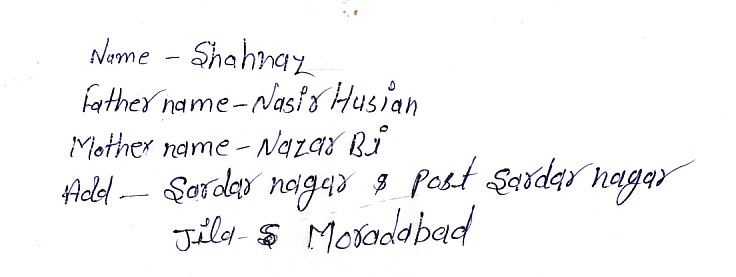 Name - Shahnaz
Father name - Nasir Husian
Mother name - Nazar Bi
Add - Sardar nagar & Post Sardar nagar
Jila - Moradabad